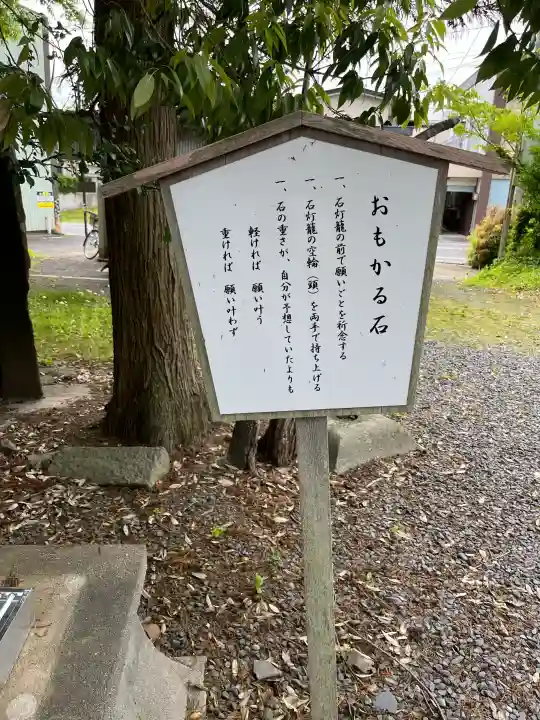 おもかる石
一、石灯籠の前で願いごとを祈念する
一、石灯籠の空輪（頭）を両手で持ち上げる
一、石の重さが、自分が予想していたよりも
軽ければ　願い叶う
重ければ　願い叶わず